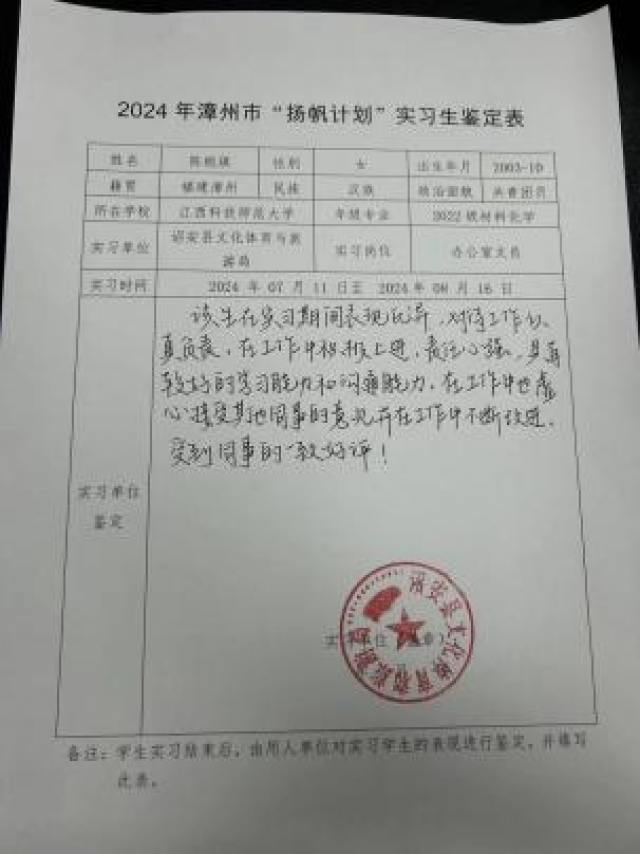 2024 年漳州市“扬帆计划”实习生鉴定表
姓名 陈 性别 女 出生年月 2003-10
籍贯 福建漳州 民族 汉族 政治面貌 共青团员
所在学校 江西科技师范大学 年级专业 2022级材料化学
实习单位 诏安县文化体育与旅游局 实习岗位 办公室文员
实习时间 2024 年 07 月 11 日至 2024 年 08 月 15 日
实习单位鉴定
该生在实习期间表现优异，对待工作认
真负责，在工作中积极上进，责任心强，具有
较好的学习能力和沟通能力，在工作中也虚
心接受其他同事的意见并在工作中不断改进，
受到同事的一致好评！
诏安县文化体育和旅游局
实习单位（盖章）
备注：学生实习结束后，由用人单位对实习学生的表现进行鉴定，并填写
此表。